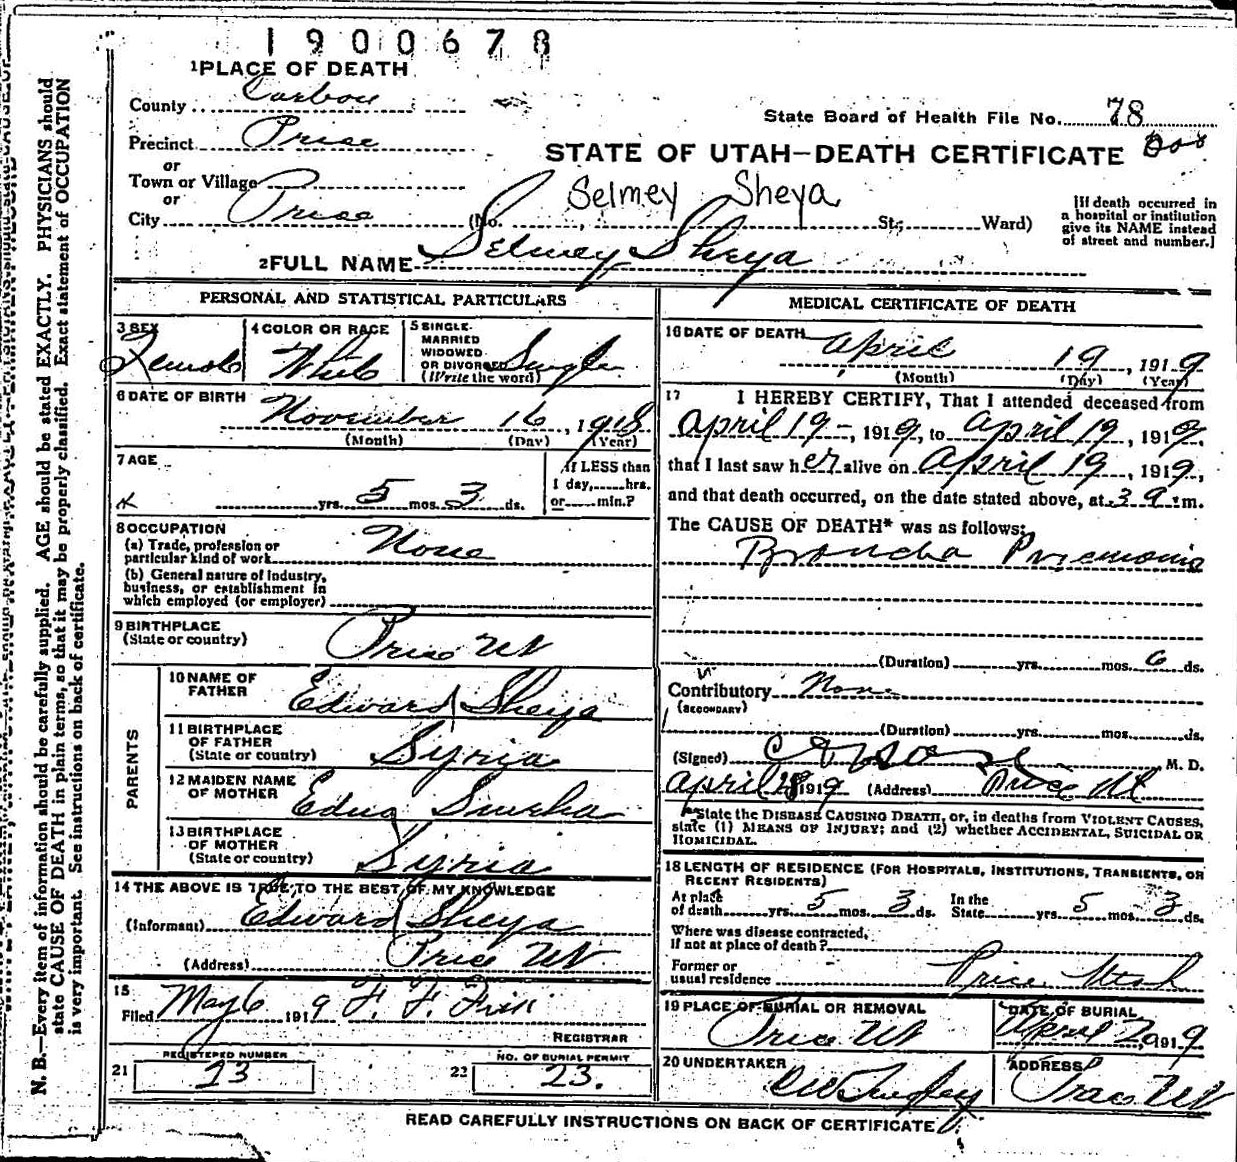 1900678
1 PLACE OF DEATH
County Carbon
State Board of Health File No. 78
Precinct Price
STATE OF UTAH—DEATH CERTIFICATE
or
Town or Village
or
City Price (No. St; Ward)
Selmey Sheya
[If death occurred in
a hospital or institution
give its NAME instead
of street and number.]
2 FULL NAME Selmey Sheya
PERSONAL AND STATISTICAL PARTICULARS
3 SEX Female
4 COLOR OR RACE White
5 SINGLE
MARRIED
WIDOWED
OR DIVORCED Single
(Write the word)
6 DATE OF BIRTH November 16, 1918
(Month) (Day) (Year)
7 AGE
yrs. 5 mos. 3 ds.
If LESS than
1 day, hrs.
or min.?
8 OCCUPATION
(a) Trade, profession or
particular kind of work None
(b) General nature of industry,
business, or establishment in
which employed (or employer)
9 BIRTHPLACE
(State or country) Price Ut
PARENTS
10 NAME OF
FATHER Edward Sheya
11 BIRTHPLACE
OF FATHER
(State or country) Syria
12 MAIDEN NAME
OF MOTHER
13 BIRTHPLACE
OF MOTHER
(State or country) Syria
14 THE ABOVE IS TRUE TO THE BEST OF MY KNOWLEDGE
(Informant) Edward Sheya
(Address) Price Ut
15
Filed May 6 1919 F. F.
REGISTRAR
REGISTERED NUMBER
21 23
NO. OF BURIAL PERMIT
22 23.
MEDICAL CERTIFICATE OF DEATH
16 DATE OF DEATH April 19, 1919
(Month) (Day) (Year)
17 I HEREBY CERTIFY, That I attended deceased from
April 19-, 1919, to April 19, 1919,
that I last saw her alive on April 19, 1919,
and that death occurred, on the date stated above, at 3 a. m.
The CAUSE OF DEATH* was as follows:
Broncho Pneumonia
(Duration) yrs. mos. 6 ds.
Contributory None
(SECONDARY)
(Duration) yrs. mos. ds.
(Signed) M. D.
April 1919 (Address) Price Ut
*State the DISEASE CAUSING DEATH, or, in deaths from VIOLENT CAUSES,
state (1) MEANS OF INJURY; and (2) whether ACCIDENTAL, SUICIDAL OR
HOMICIDAL.
18 LENGTH OF RESIDENCE (FOR HOSPITALS, INSTITUTIONS, TRANSIENTS, OR
RECENT RESIDENTS)
At place
of death yrs. 5 mos. 3 ds.
In the
State yrs. 5 mos. 3 ds.
Where was disease contracted,
If not at place of death?
Former or
usual residence Price Utah
19 PLACE OF BURIAL OR REMOVAL
Price Ut
DATE OF BURIAL
April 20, 1919
20 UNDERTAKER
ADDRESS
Price Ut
READ CAREFULLY INSTRUCTIONS ON BACK OF CERTIFICATE
N. B.—Every item of information should be carefully supplied. AGE should be stated EXACTLY. PHYSICIANS should
state CAUSE OF DEATH in plain terms, so that it may be properly classified. Exact statement of OCCUPATION
is very important. See instructions on back of certificate.